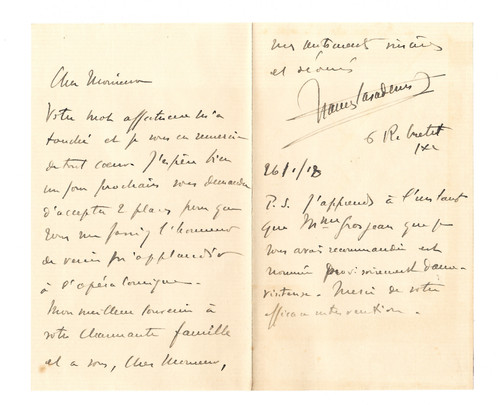 Cher Monsieur
Votre mot affectueux m'a
touché et je vous en remercie
de tout cœur. J'espère bien
un jour prochain vous demander
d'accepter 2 places pour que
vous me fassiez l'honneur
de venir m'applaudir
à l'opéra comique.
Mon meilleur souvenir à
votre charmante famille
et à vous, Cher Monsieur,
mes sentiments sincères
et dévoués
Francis Casadesus
6 R.
IXe
26/1/18
P.S. J'apprends à l'instant
que Mme Grosjean que je
vous avais recommandée est
nommée provisoirement dame-
visiteuse. Merci de votre
efficace intervention.